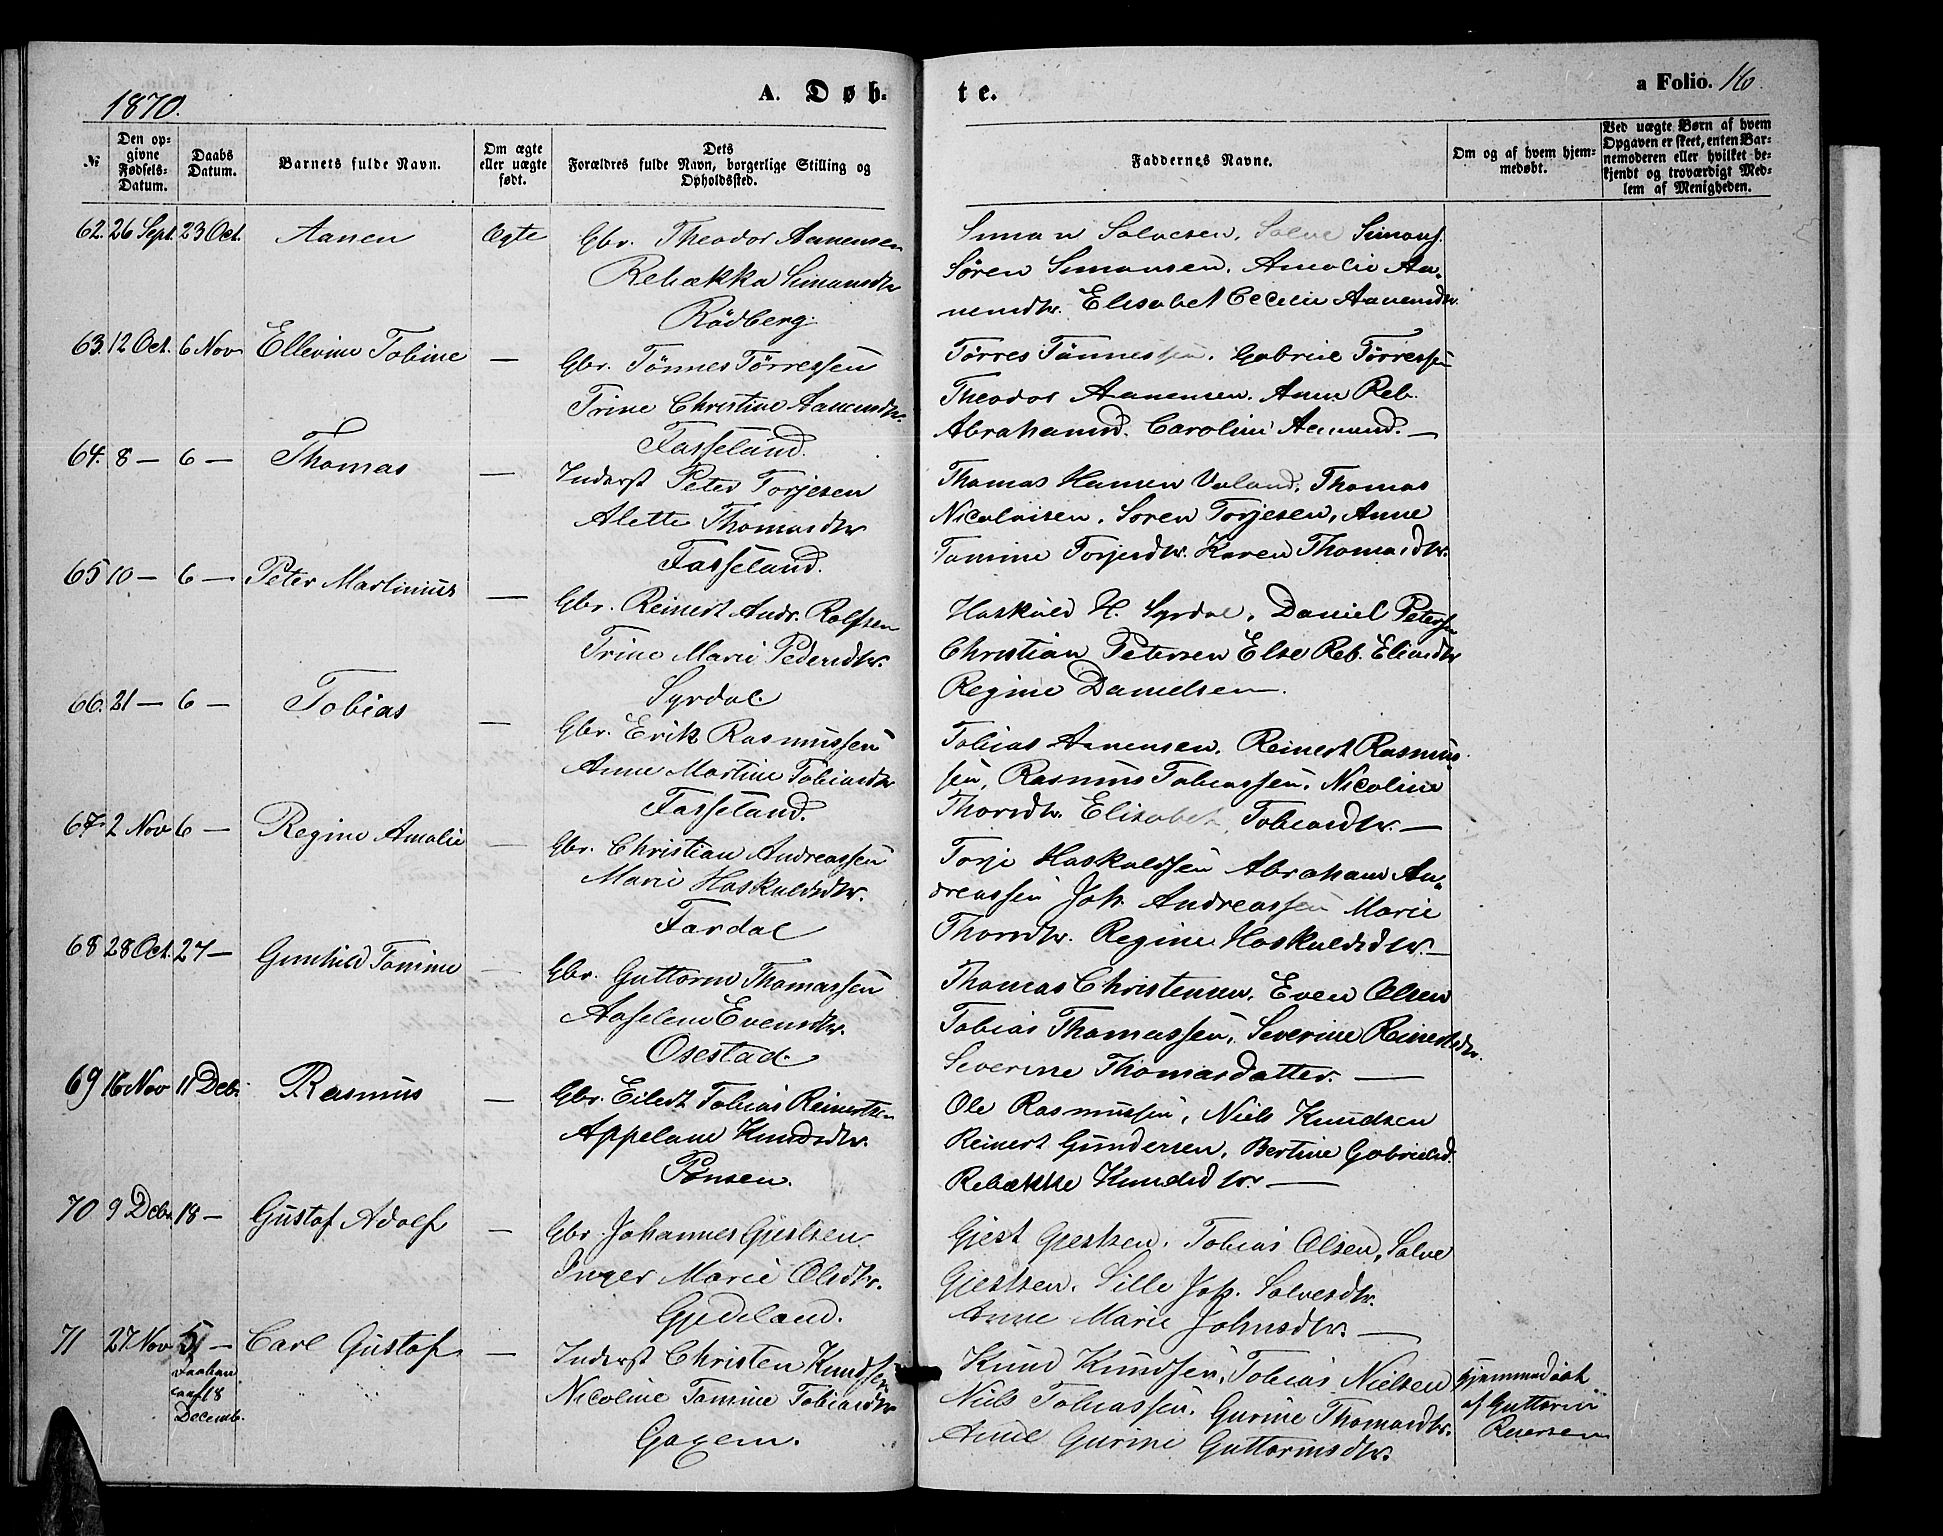 1870.
A. Døb-
te.
a Folio. 16.
№
Den op-
givne
Fødsels-
Datum.
Daabs
Datum.
Barnets fulde Navn.
Om ægte
eller uægte
født.
Dets
Forældres fulde Navn, borgerlige Stilling og
Opholdssted.
Faddernes Navne.
Om og af hvem hjem-
medøbt.
Ved uægte Børn af hvem
Opgaven er skeet, enten Bar-
nemoderen eller hvilket be-
kjendt og troværdigt Med-
lem af Menigheden.
62. 26 Sept. 23 Oct. Aanen Ægte Gbr. Theodor Aanensen
Rebækka Simonsdtr
Rødberg.
Simon Salvesen, Salve Simons.
Søren Simonsen, Amalie Aa-
nensdtr. Elisabet Cecelie Aanensdtr.
63. 12 Oct. 6 Nov Ellevine Tobine — Gbr. Tønnes Tørressen
Trine Christine Aanensdtr.
Fasseland.
Tørres Tønnessen, Gabriel Tørressen
Theodor Aanensen. Anne Reb.
Abrahamsd. Caroline Aanensd. —
64. 8 — 6 — Thomas — Inderst Peter Torjesen
Alette Thomasdtr
Fasseland.
Thomas Hansen Valand, Thomas
Nicolaisen, Søren Torjesen, Anne
Tomine Torjesdtr. Karen Thomasdtr.
65 10 — 6 — Peter Martinius — Gbr. Reinert Andr. Rolfsen
Trine Marie Pedersdtr.
Syrdal
Haskuld H. Syrdal, Daniel Petersen
Christian Petersen Else Reb. Eliasdtr
Regine Danielsen.
66. 21 — 6 — Tobias — Gbr. Erik Rasmussen
Anne Martine Tobiasdtr
Fasseland.
Tobias Aanensen, Reinert Rasmus-
sen, Rasmus Tobiassen, Nicoline
Thorsdtr. Elisabet Tobiasdtr. —
67. 2 Nov 6 — Regine Amalie — Gbr. Christian Andreassen
Marie Haskuldsdtr.
Fardal
Torje Haskuldsen Abraham An-
dreassen Joh. Andreassen Marie
Thorsdtr. Regine Haskuldsdtr. —
68 28 Oct. 27 — Gunhild Tomine — Gbr. Guttorm Thomassen
Aaselene Evensdtr.
Osestad.
Thomas Christensen, Even Olsen
Tobias Thomassen, Severine Reinertsdtr.
Severine Thomasdatter. —
69 16 Nov 11 Debr. Rasmus — Gbr. Eilert Tobias Reinertsen
Appelane Knudsdtr.
Ole Rasmussen, Niels Knudsen
Reinert Gundersen, Bertine Gabrielsd.
Rebække Knudsdtr. —
70 9 Debr. 18 — Gustaf Adolf — Gbr. Johannes Gjestsen
Inger Marie Olsdtr.
Gjedeland.
Gjest Gjestsen, Tobias Olsen, Salve
Gjestsen. Sille Joh. Salvesdtr.
Anne Marie Johnsdtr. —
71 27 Nov 5 — Carl Gustaf — Inderst Christen Knudsen
December.
Nicoline Tomine Tobiasdtr
Knud Knudsen, Tobias Nielsen
Niels Tobiassen, Gurine Thomasdtr.
Anne Gurine Guttormsdtr.
hjemmedøbt
af Guttorm
Reiersen